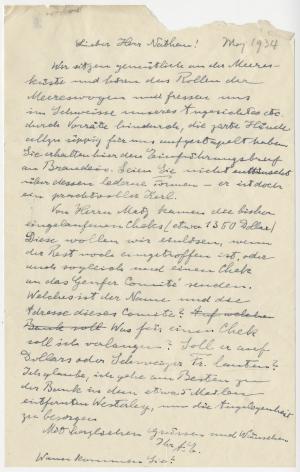 Lieber Herr Nathan! May 1934
Wir sitzen gemütlich an der Meeres-
küste und hören das Rollen der
Meereswogen und fressen uns
im Schweisse unseres Angesichtes etc.
durch Vorräte hindurch, die zarte Hände
allzu üppig für uns aufgestapelt haben.
Sie erhalten hier den Einführungsbrief
an Brandeis. Seien Sie nicht enttäuscht
über dessen lederne Formen – er ist doch
ein prachtvoller Kerl.
Von Herrn Matz kamen die bisher
eingelaufenen Cheks (etwa 1350 Dollar)
Diese wollen wir einlösen, wenn
der Rest noch eingetroffen ist, oder
auch sogleich und einen Chek
an das Genfer Comité senden.
Welches ist der Name und die
Adresse dieses Comités? Auf welche
Bank soll Was für einen Chek
soll ich verlangen? Soll er auf
Dollars oder Schweizer Fr. lauten?
Ich glaube, ich gehe am Besten zu
der Bank in dem etwas Meilen
entfernten Westerley, um die Angelegenheit
zu besorgen
Mit herzlichen Grüssen und Wünschen
Ihr A. E.
Wann kommen Sie?